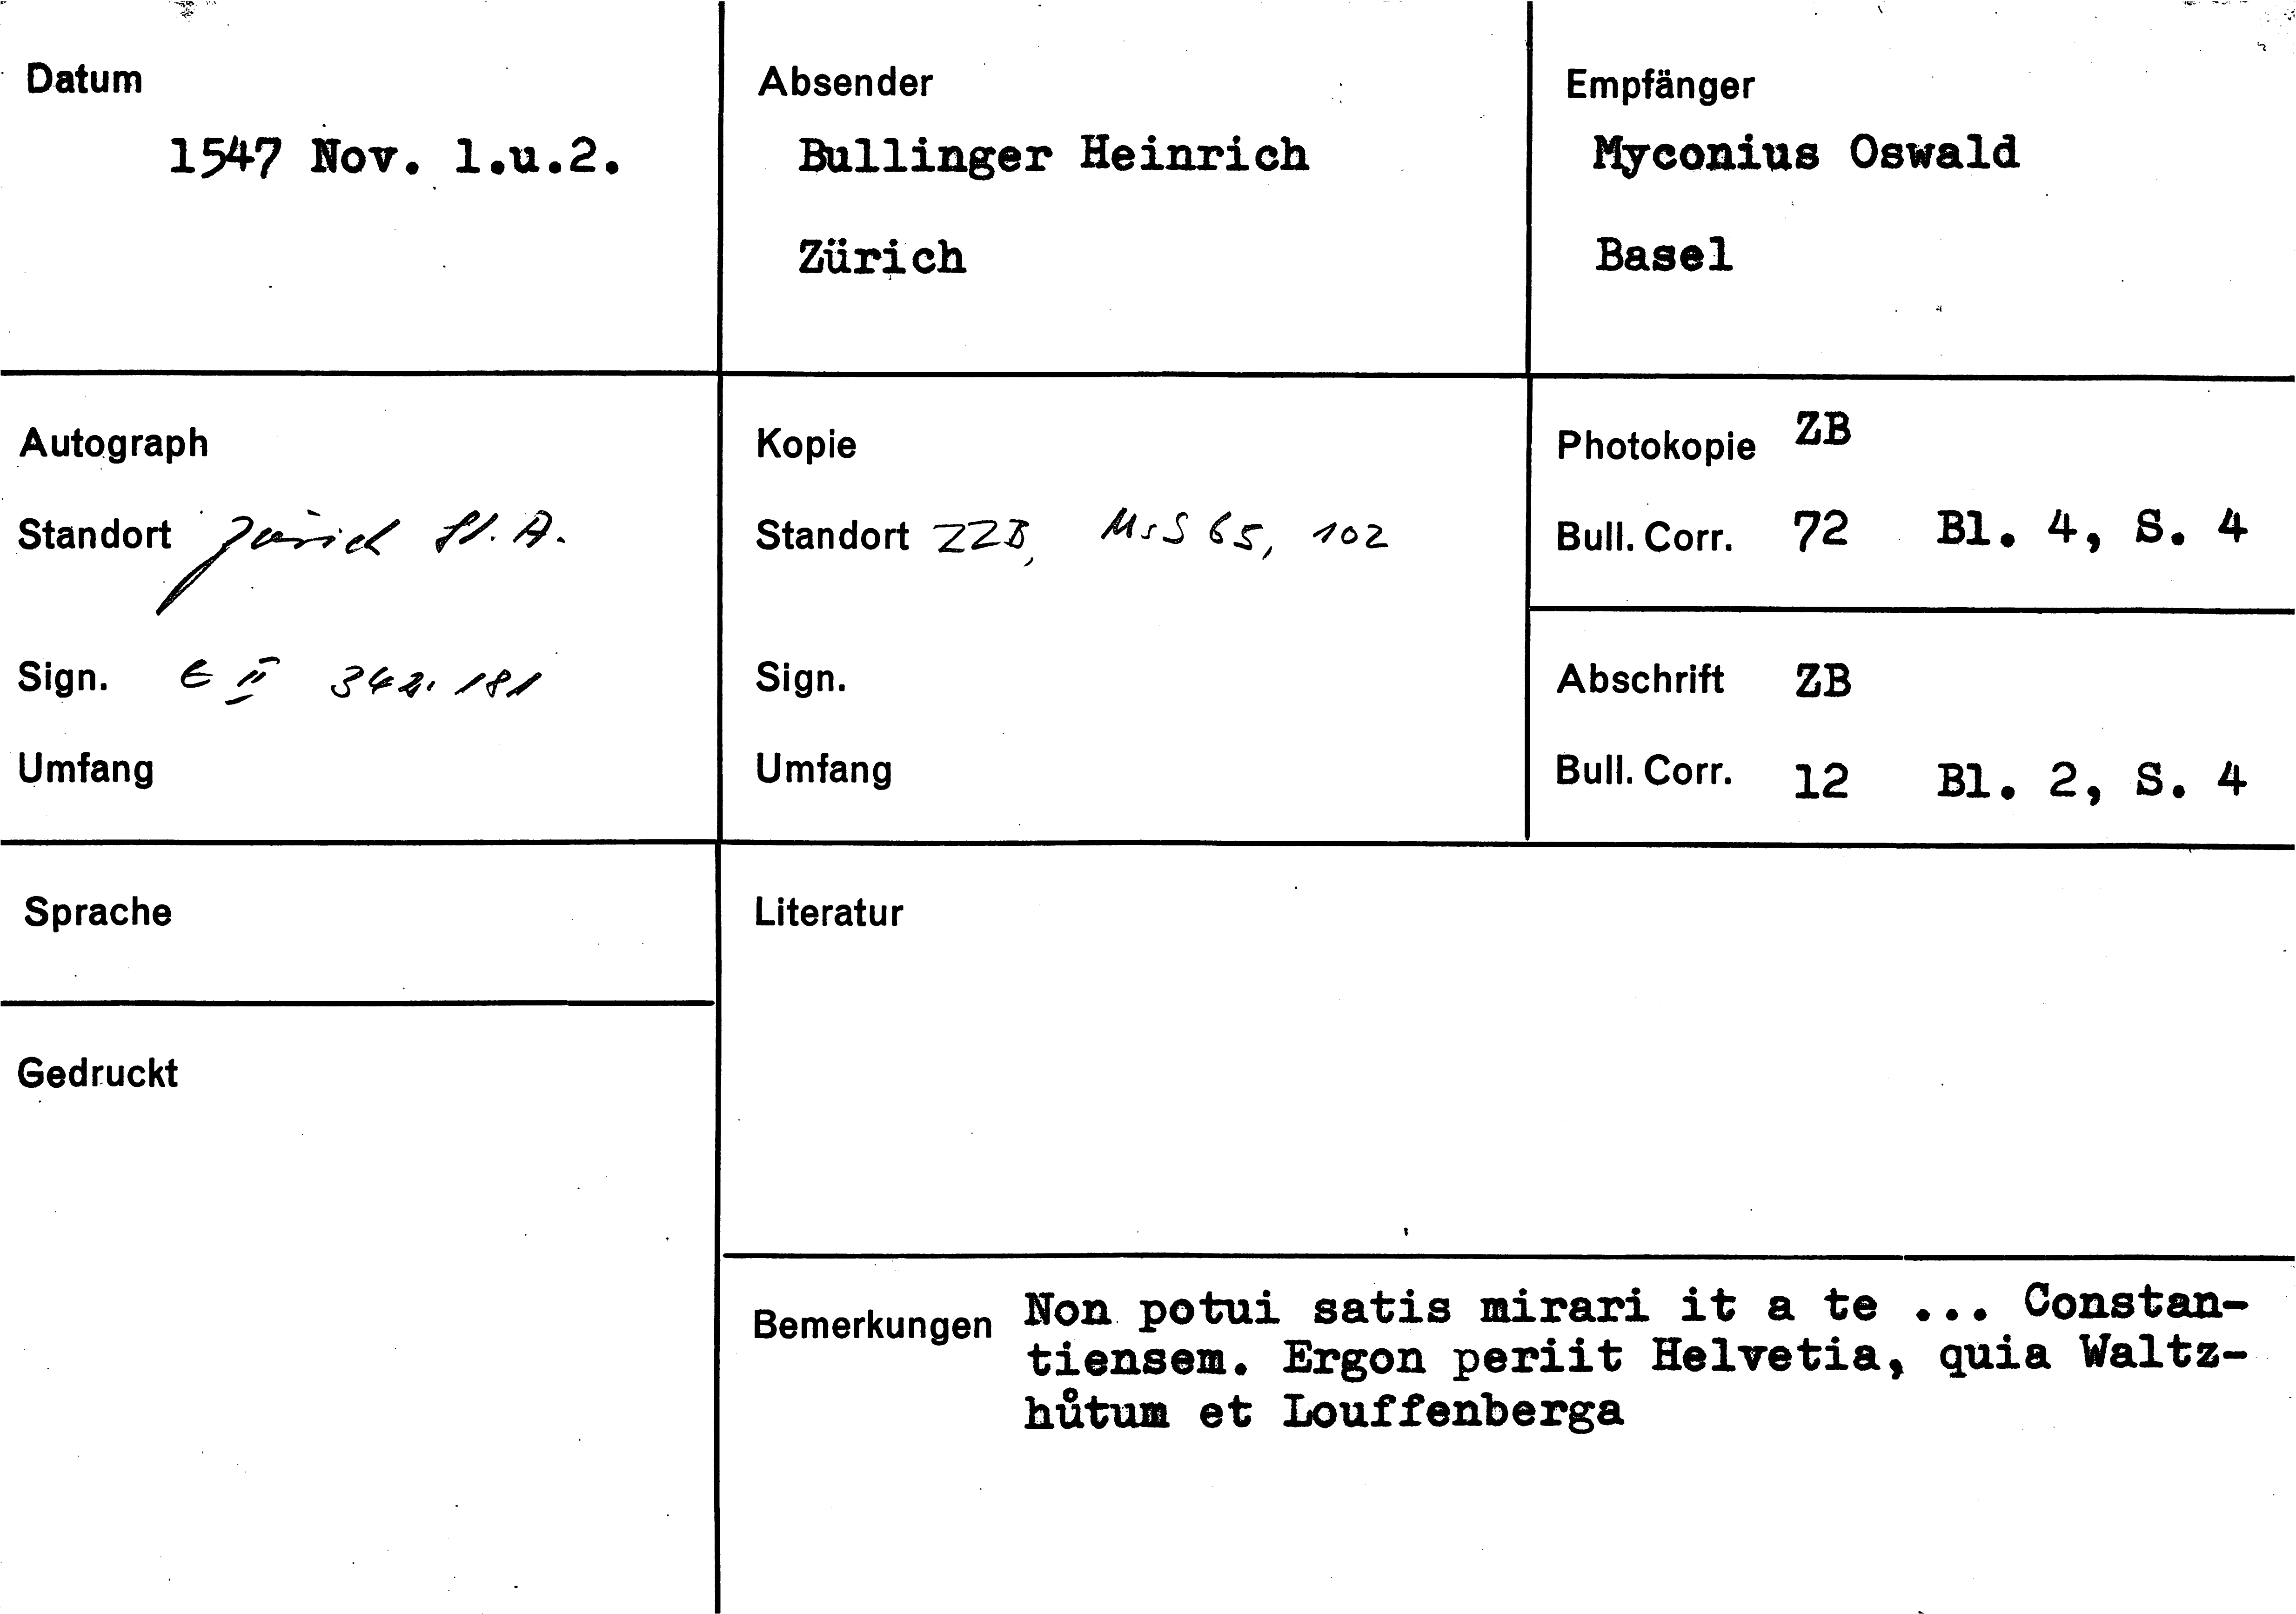 Datum
1547 Nov. 1.u.2.
Absender
Bullinger Heinrich
Zürich
Empfänger
Myconius Oswald
Basel
Autograph
Standort Zürich St. A.
Sign. E II 342. 181
Umfang
Kopie
Standort ZZB, MsS 65, 102
Sign.
Umfang
Photokopie ZB
Bull. Corr. 72 Bl. 4, S. 4
Abschrift ZB
Bull. Corr. 12 Bl. 2, S. 4
Sprache
Gedruckt
Literatur
Bemerkungen Non potui satis mirari it a te ... Constan-
tiensem. Ergon periit Helvetia, quia Waltz-
hůtum et Louffenberga